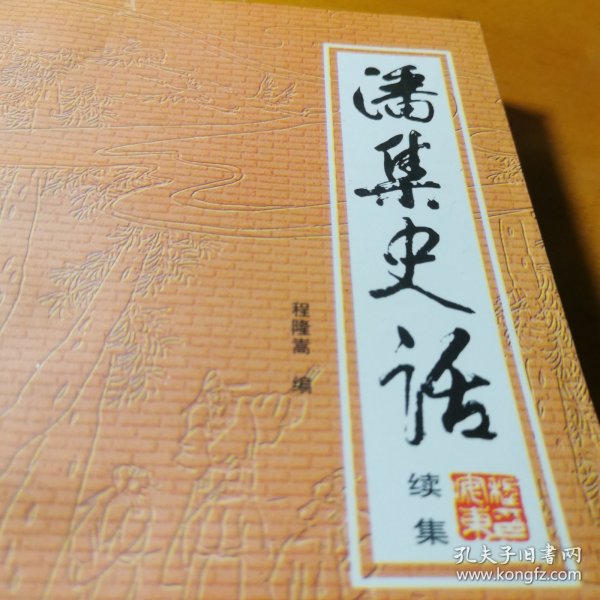 潘集史话
续集
程隆嵩 编
孔夫子旧书网
www.kongfz.com